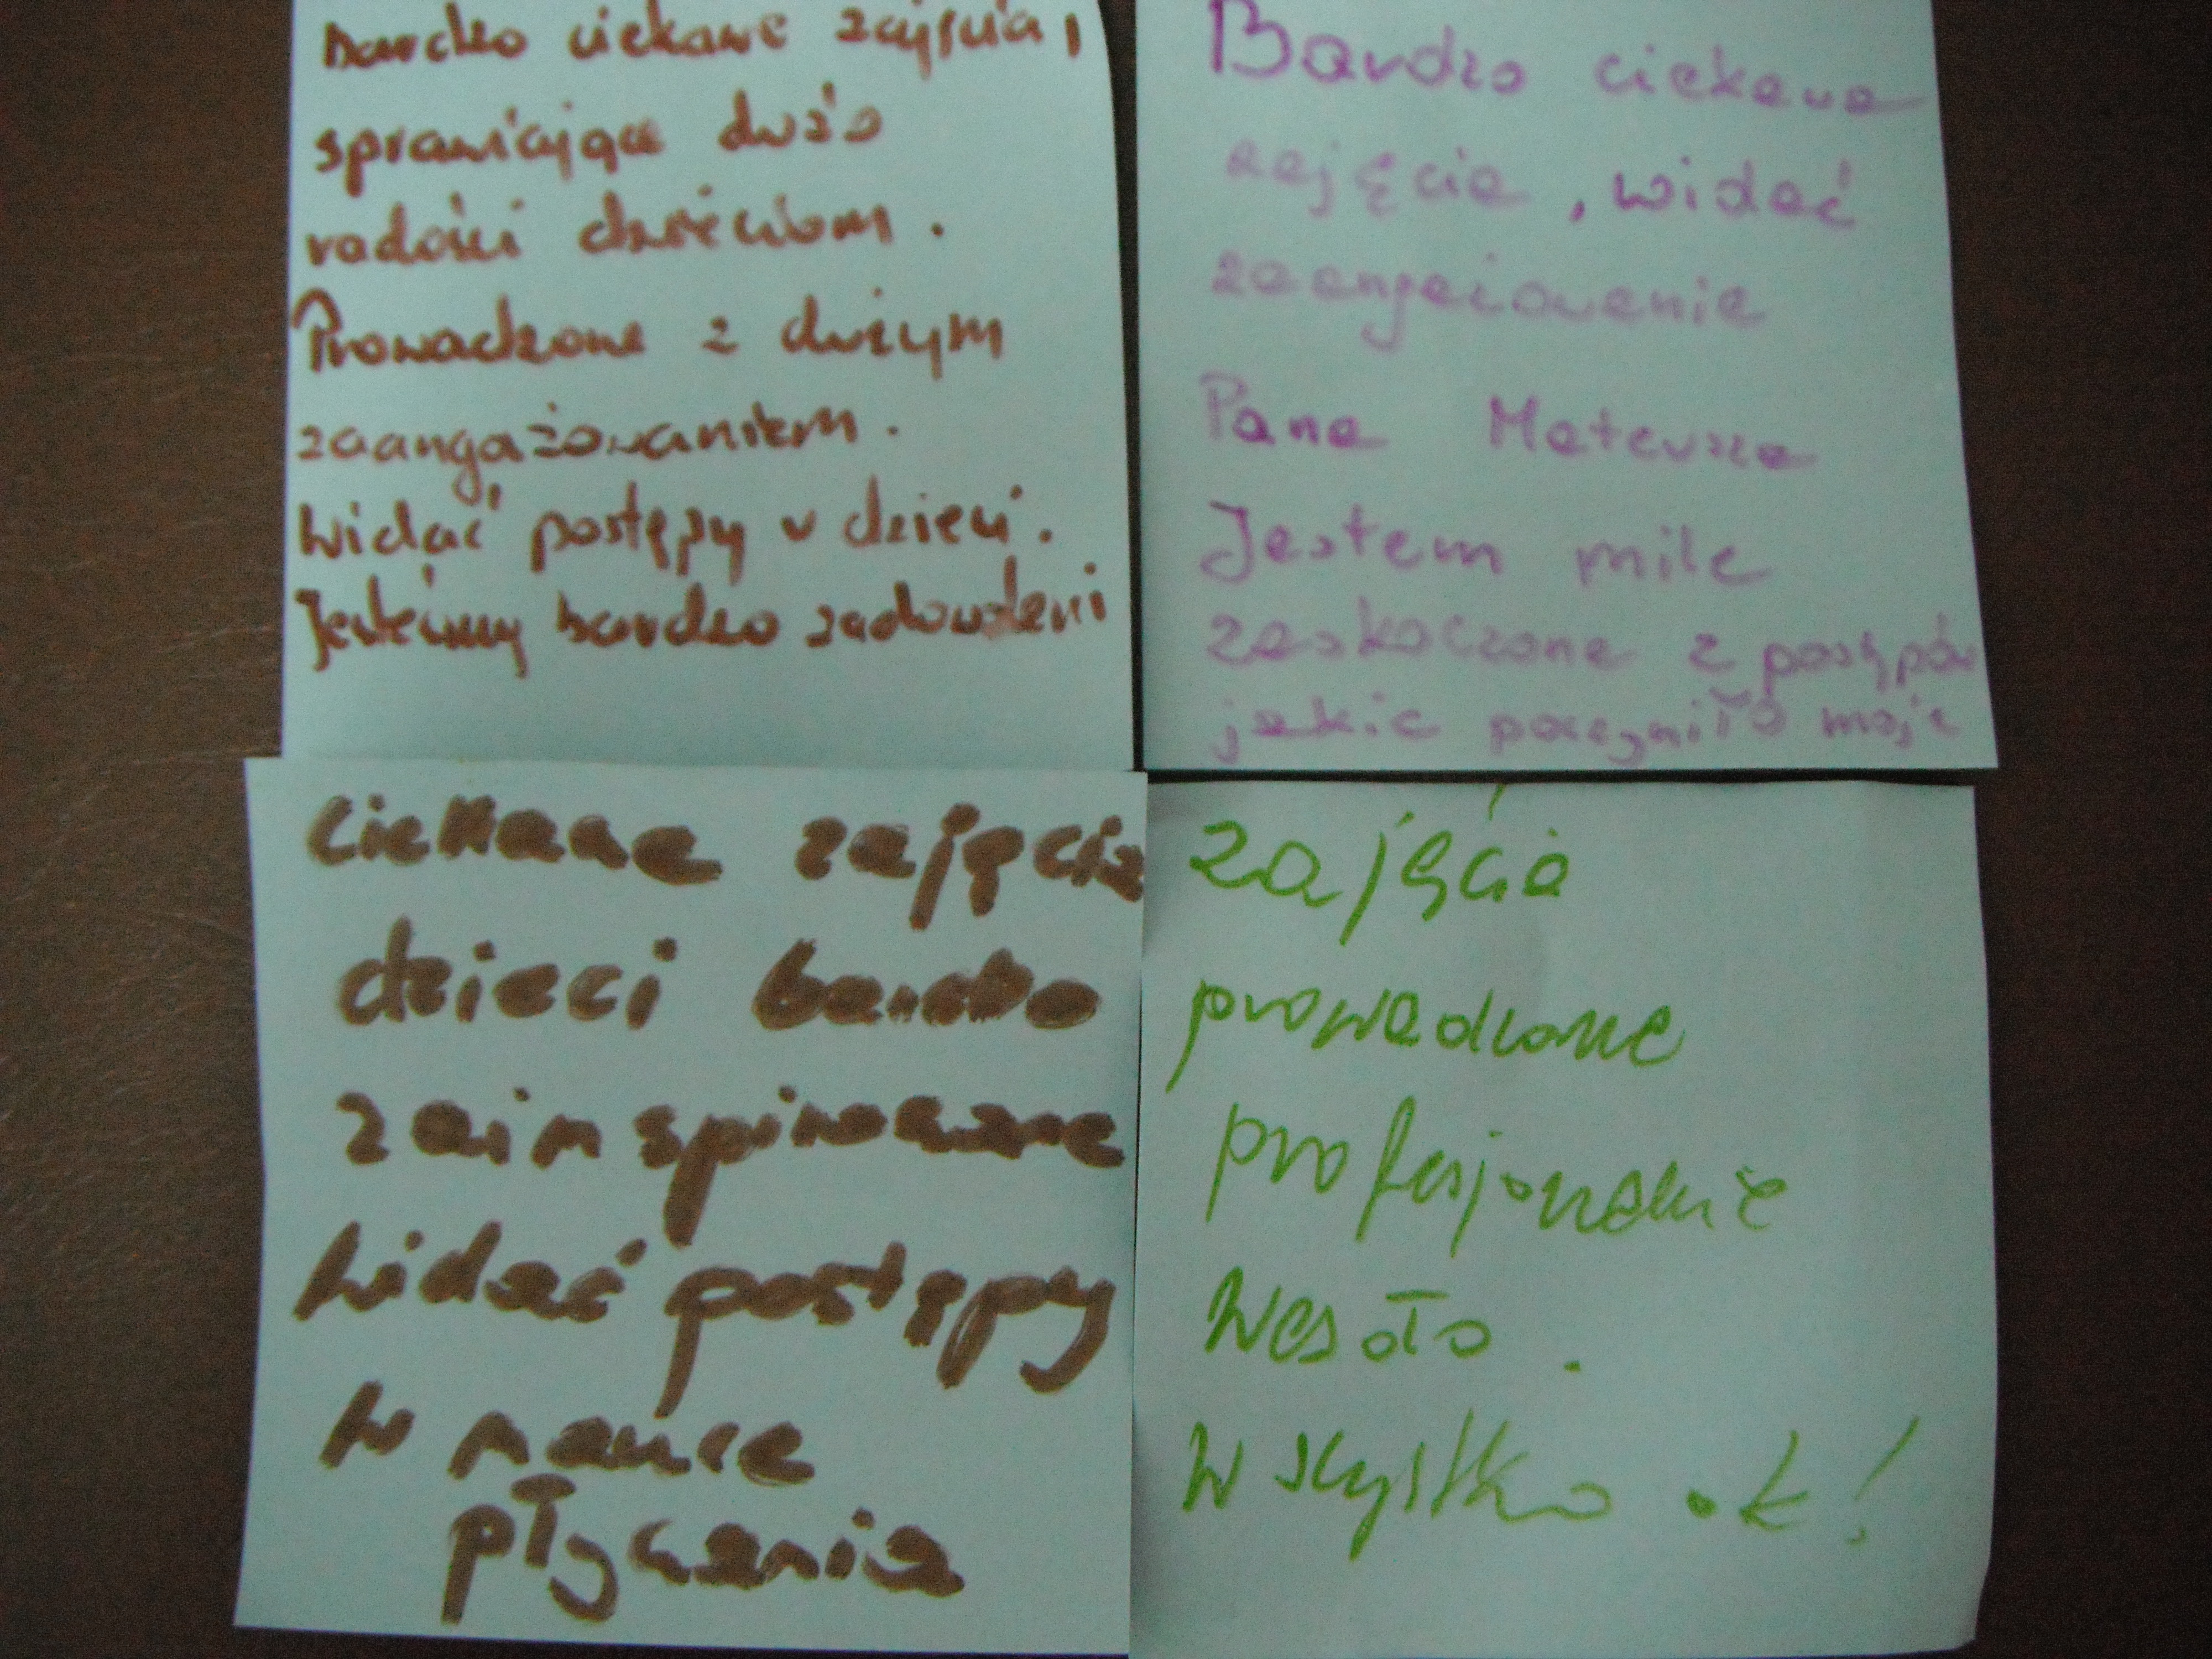 Bardzo ciekawe zajęcia,
sprawiające dużo
radości dzieciom.
Prowadzone z dużym
zaangażowaniem.
Widać postępy u dzieci.
Jesteśmy bardzo zadowoleni
Bardzo ciekawe
zajęcia, widać
zaangażowanie
Pana Mateusza
Jestem mile
zaskoczona z postępów
jakie poczyniło moje
Ciekawe zajęcia
dzieci bardzo
zainspirowane
Widać postępy
w nauce
pływania
zajęcia
prowadzone
profesjonalnie
Wesoło.
Wszystko ok!